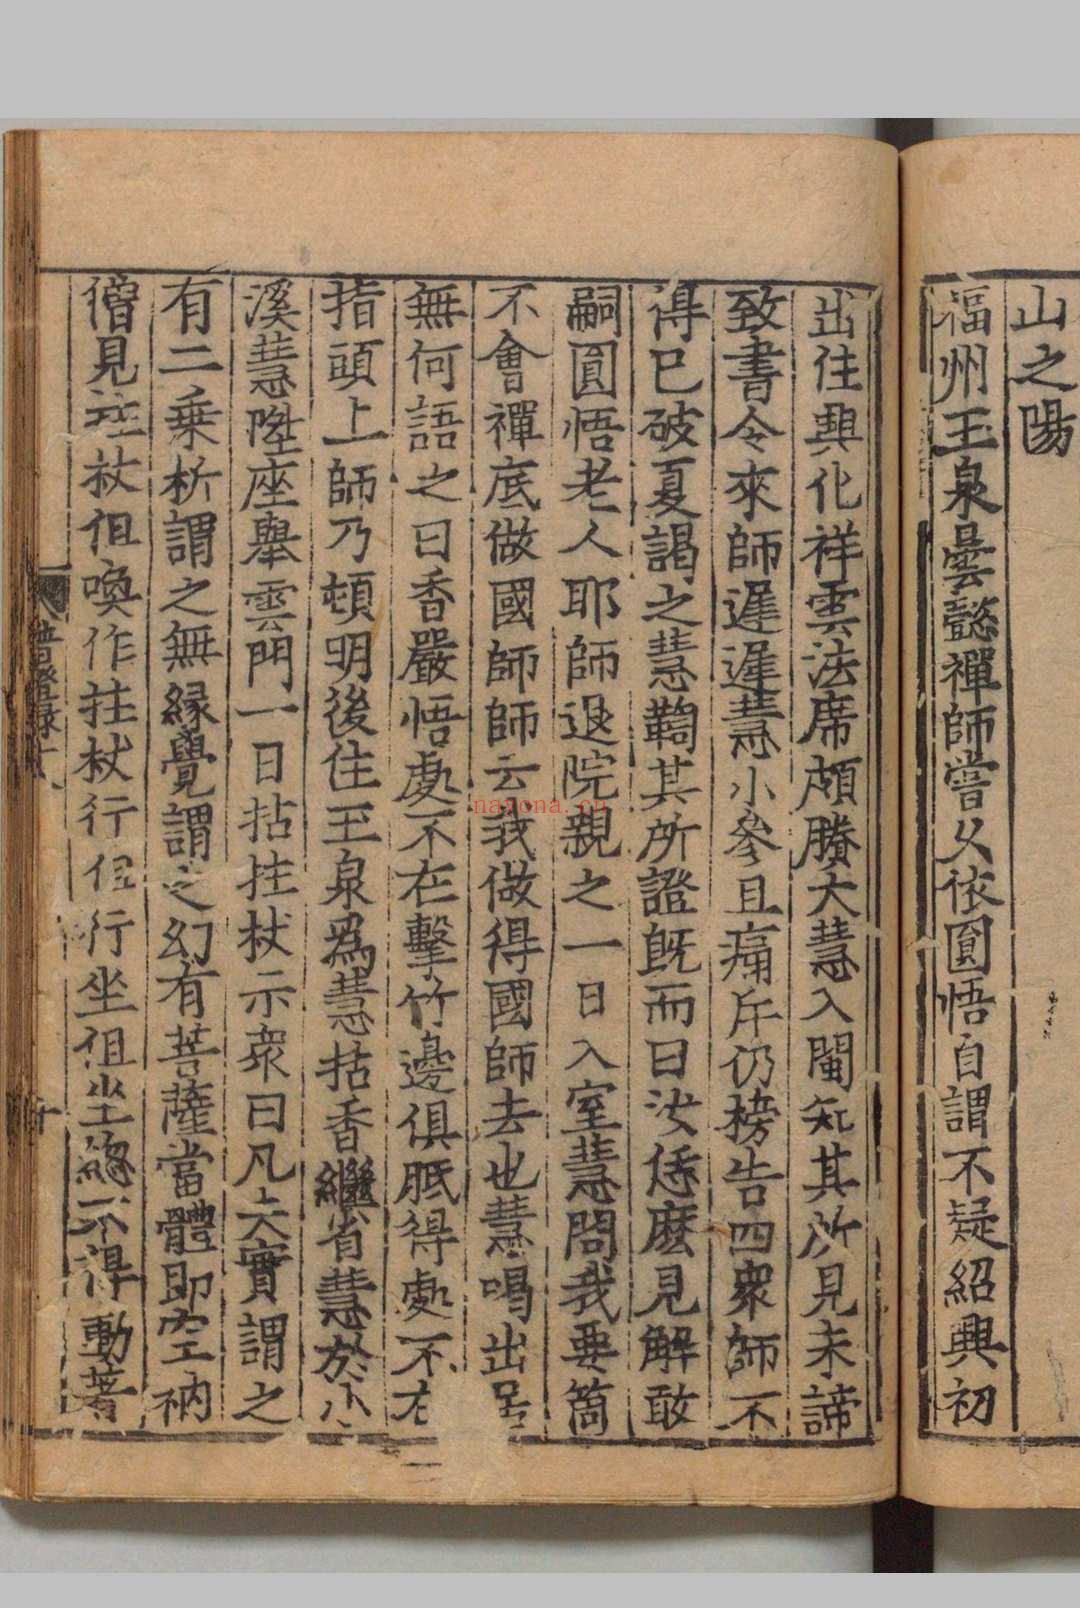 山之陽
福州玉泉曇懿禪師嘗久依圓悟自謂不疑紹興初
出住興化祥雲法席頗賸大慧入閩知其所見未諦
致書令來師遲遲慧小參且痛斥仍榜告四衆師不
得已破夏謁之慧鞫其所證既而曰汝恁麼見解敢
嗣圓悟老人耶師退院親之一日入室慧問我要箇
不會禪底做國師師云我做得國師去也慧喝出居
無何語之曰香嚴悟處不在擊竹邊俱胝得處不在
指頭上師乃頓明後住玉泉爲慧拈香繼省慧於小
溪慧陞座舉雲門一日拈拄杖示衆曰凡夫實謂之
有二乗析謂之無縁覺謂之幻有菩薩當體即空衲
僧見拄杖但喚作拄杖行但行坐但坐緫不得動著
普燈録十八
十
nayona.cn